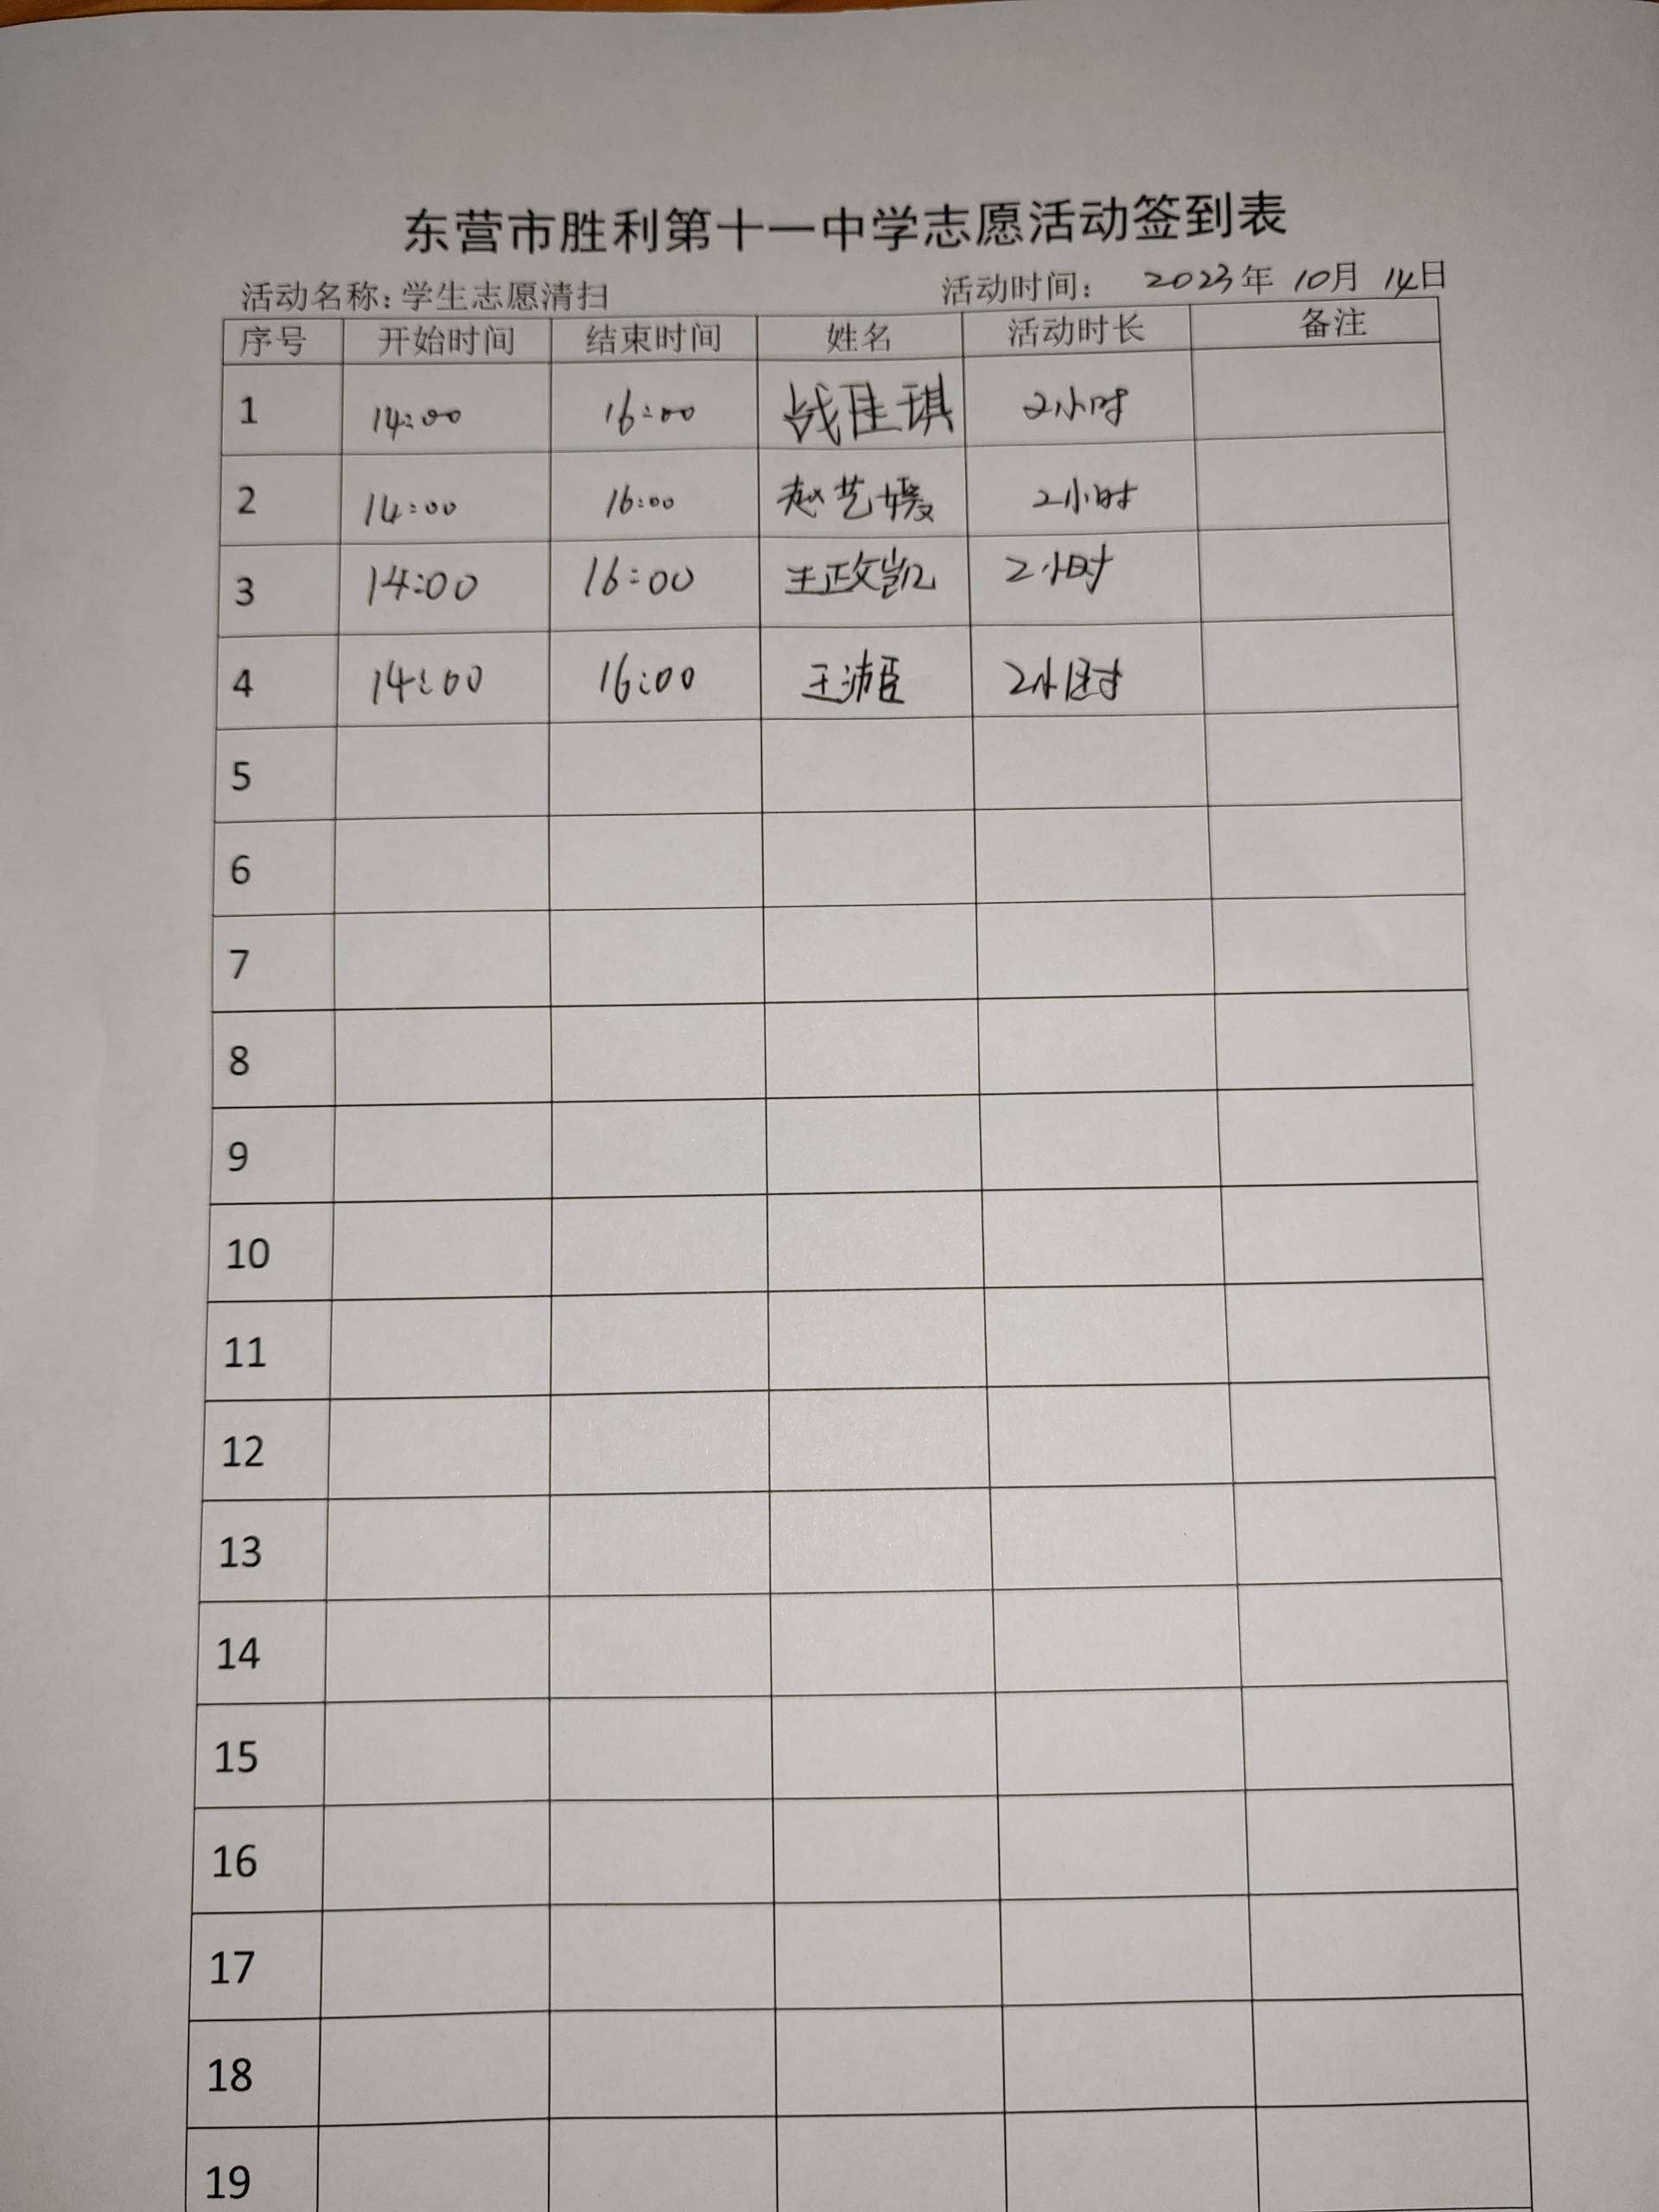 东营市胜利第十一中学志愿活动签到表
活动名称:学生志愿清扫 活动时间: 2023年 10月 14日
序号 开始时间 结束时间 姓名 活动时长 备注
1 14:00 16:00 战佳琪 2小时
2 14:00 16:00 赵艺媛 2小时
3 14:00 16:00 王政凯 2小时
4 14:00 16:00 王沛臣 2小时
5
6
7
8
9
10
11
12
13
14
15
16
17
18
19